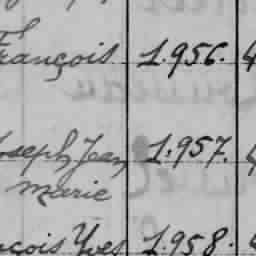 François 1.956. 4
Joseph Jean 1.957. 4
Marie
Yves 1.958.